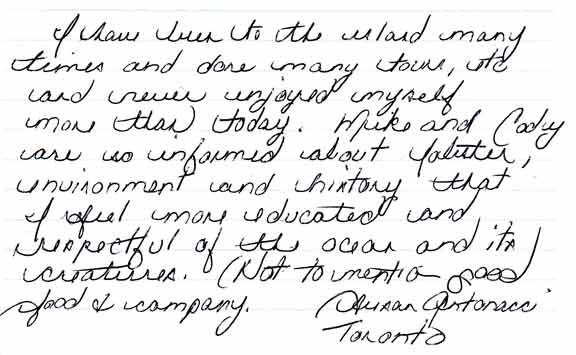 I have been to the island many
times and done many tours, etc
and never enjoyed myself
more than today. Mike and Cody
are so informed about
environment and history that
I feel more educated and
respectful of the ocean and its
creatures. (Not to mention good
food & company.) Susan Antonacci
Toronto